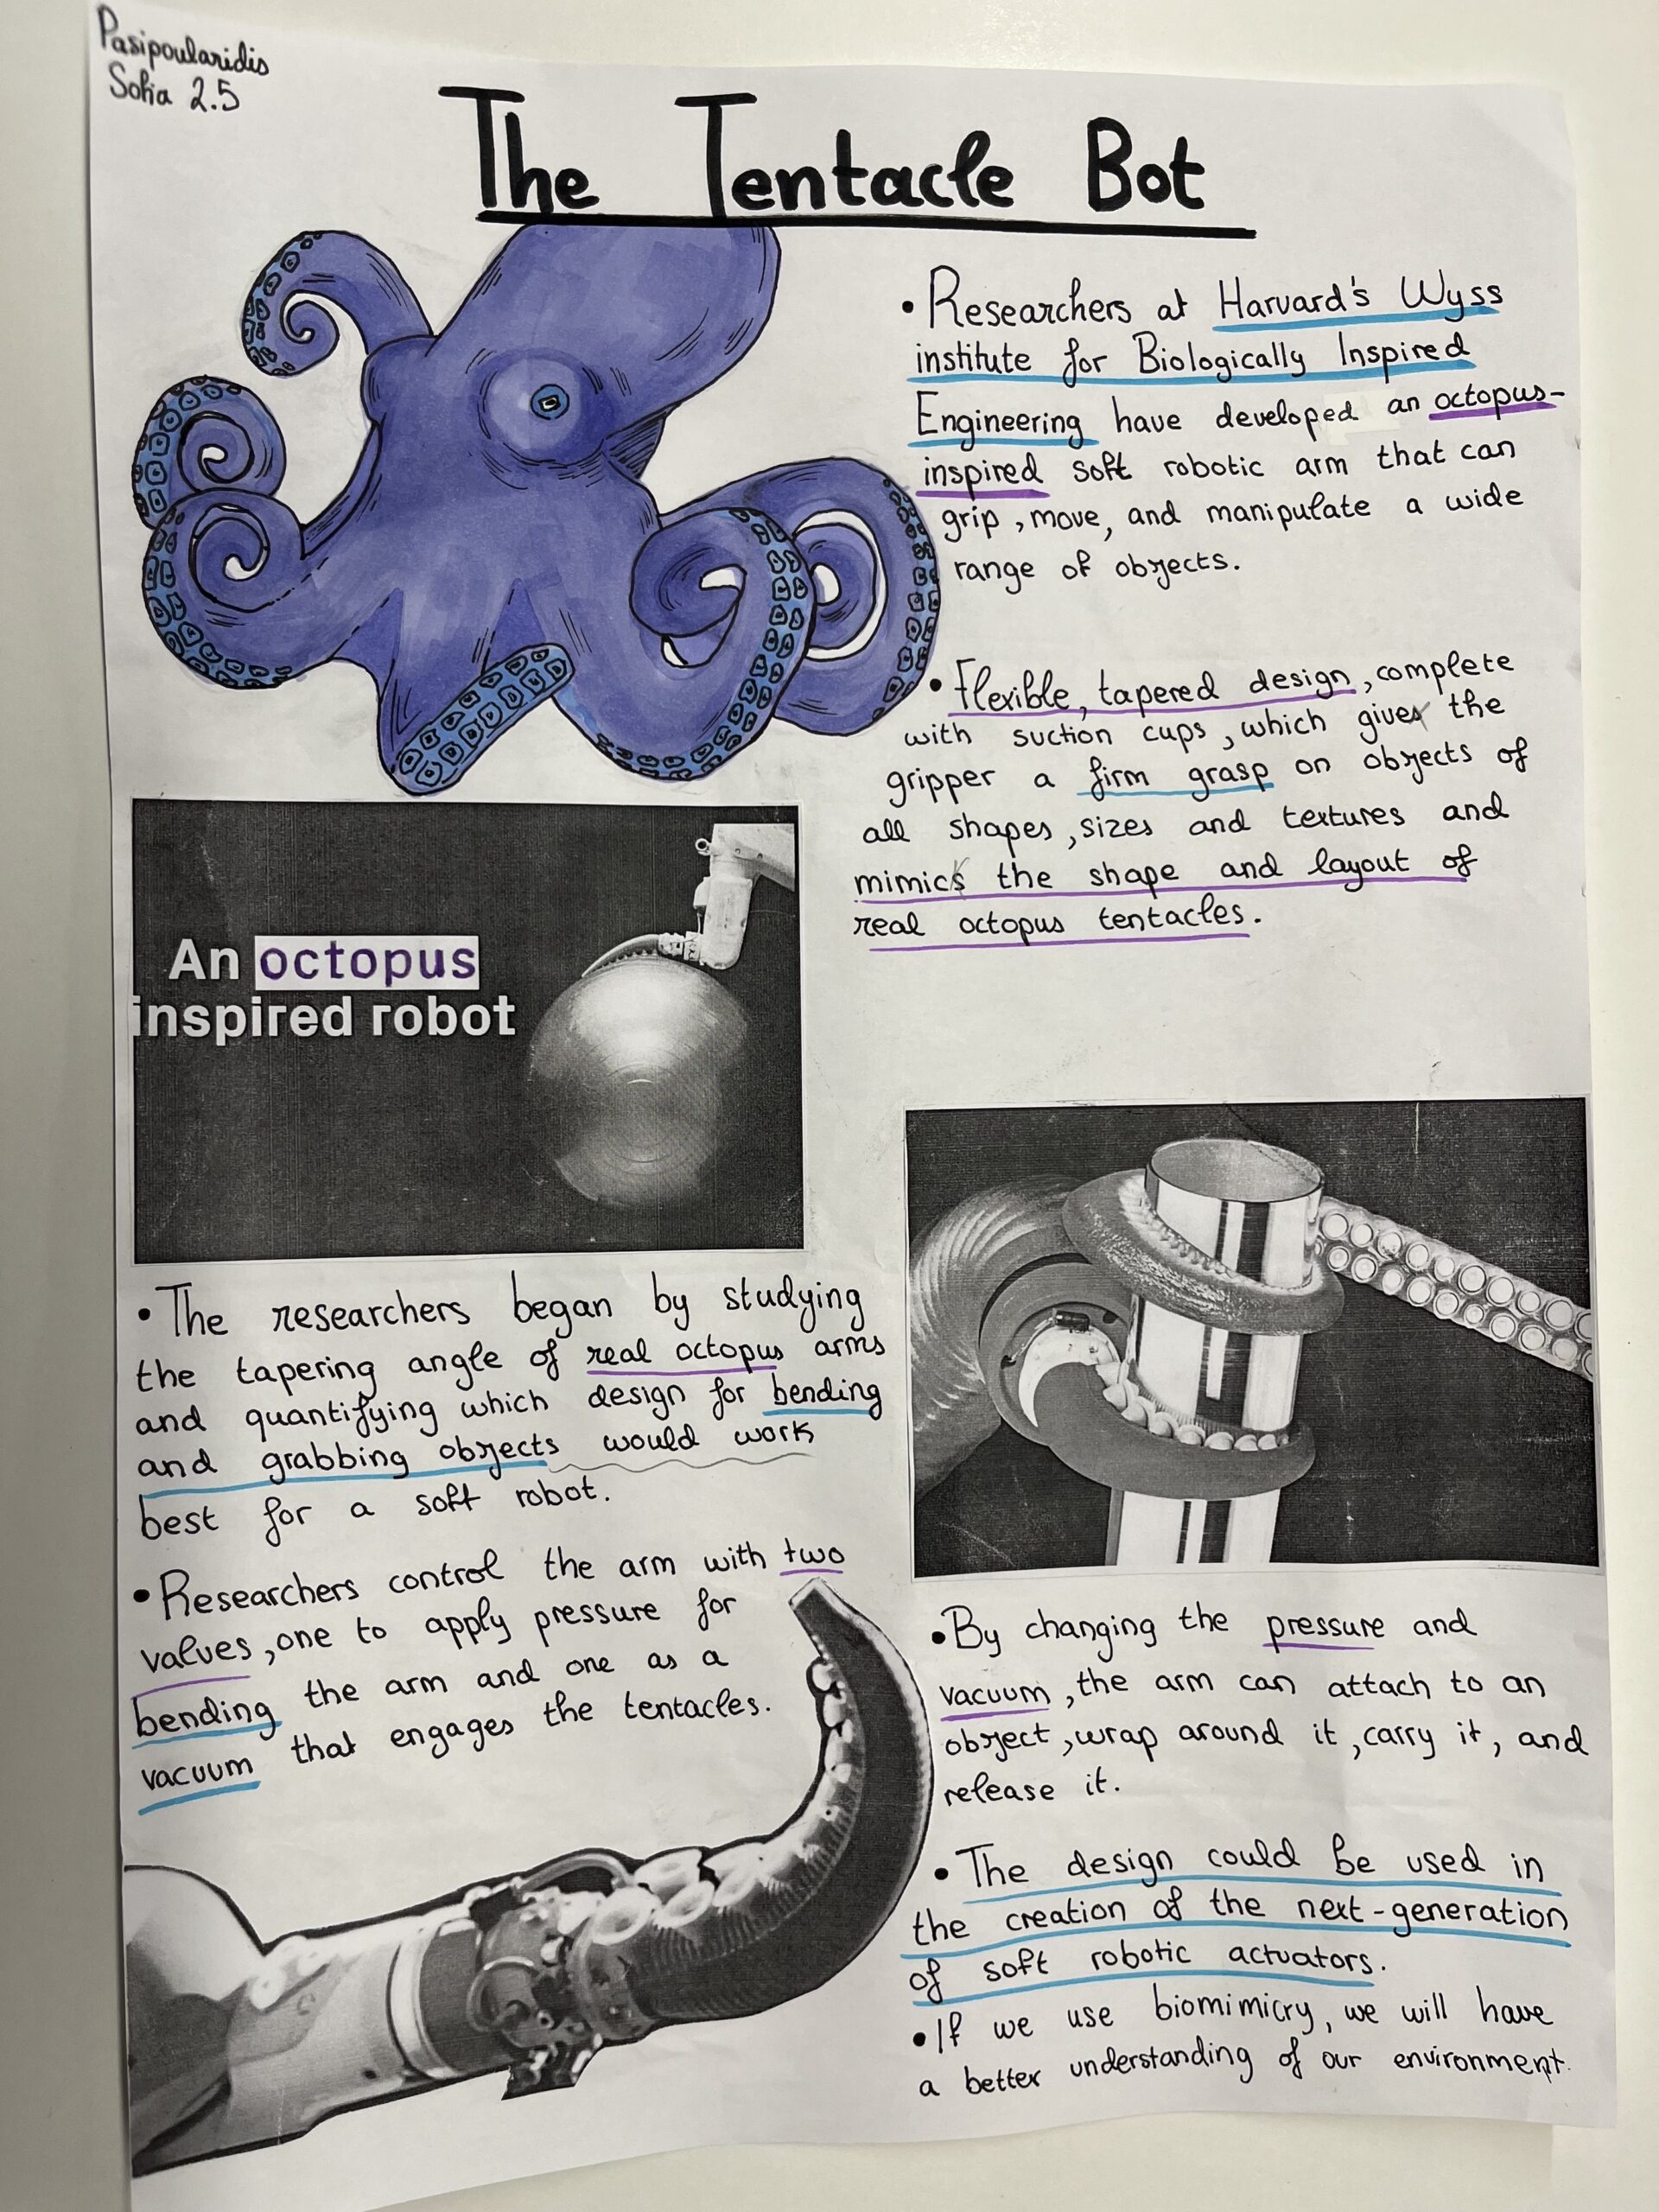 Pasipoularidis
Sofia 2.5
The Tentacle Bot
• Researchers at Harvard's Wyss
institute for Biologically Inspired
Engineering have developed an octopus-
inspired soft robotic arm that can
grip, move, and manipulate a wide
range of objects.
• Flexible, tapered design, complete
with suction cups, which gives the
gripper a firm grasp on objects of
all shapes, sizes and textures and
mimics the shape and layout of
real octopus tentacles.
An octopus
inspired robot
• The researchers began by studying
the tapering angle of real octopus arms
and quantifying which design for bending
and grabbing objects would work
best for a soft robot.
• Researchers control the arm with two
valves, one to apply pressure for
bending the arm and one as a
vacuum that engages the tentacles.
• By changing the pressure and
vacuum, the arm can attach to an
object, wrap around it, carry it, and
release it.
• The design could be used in
the creation of the next-generation
of soft robotic actuators.
• If we use biomimicry, we will have
a better understanding of our environment.